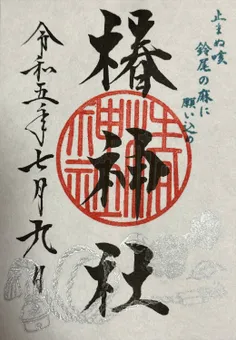 止まぬ咳
鈴尾の麻に
願い込め
椿神社
令和五年七月九日
椿神社